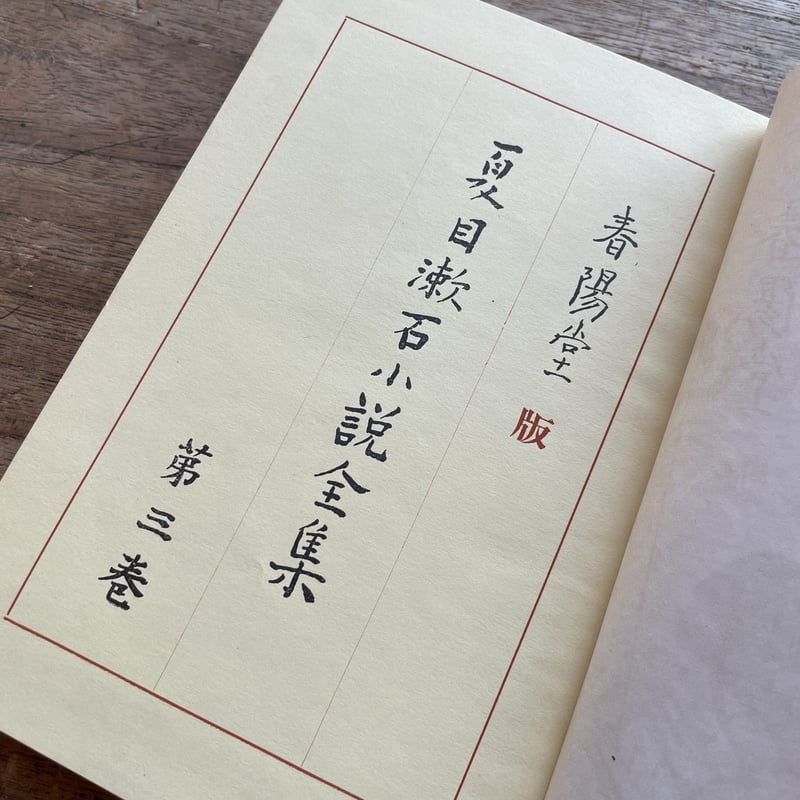 春陽堂版
夏目漱石小説全集
第三巻